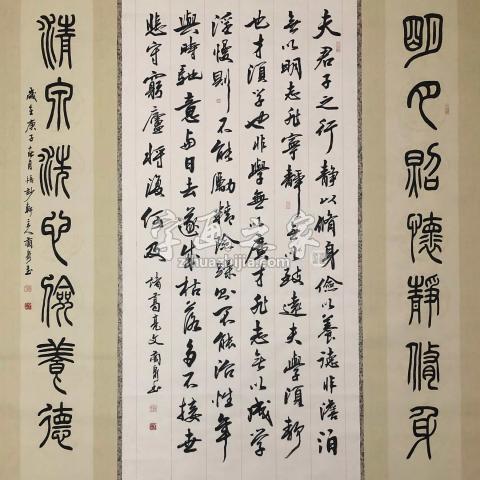 明月照懷靜脩身
夫君子之行靜以脩身儉以養德非澹泊
無以明志非寧靜無以致遠夫學須靜
也才須學也非學無以廣才非志無以成學
淫慢則不能勵精險躁則不能治性年
與時馳意與日去遂成枯落多不接世
悲守窮廬將復何及
諸葛亮文
清泉洗心儉養德
歲在庚子
字画之家